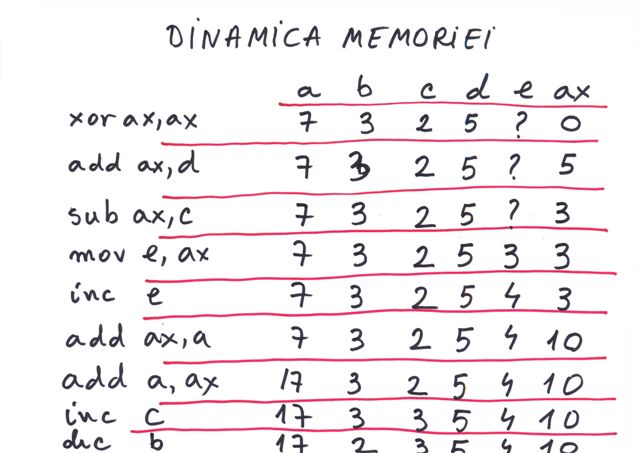 DINAMICA MEMORIEI
a b c d e ax
xor ax,ax 7 3 2 5 ? 0
add ax,d 7 3 2 5 ? 5
sub ax,c 7 3 2 5 ? 3
mov e, ax 7 3 2 5 3 3
inc e 7 3 2 5 4 3
add ax,a 7 3 2 5 4 10
add a, ax 17 3 2 5 4 10
inc c 17 3 3 5 4 10
dec b 17 2 3 5 4 10